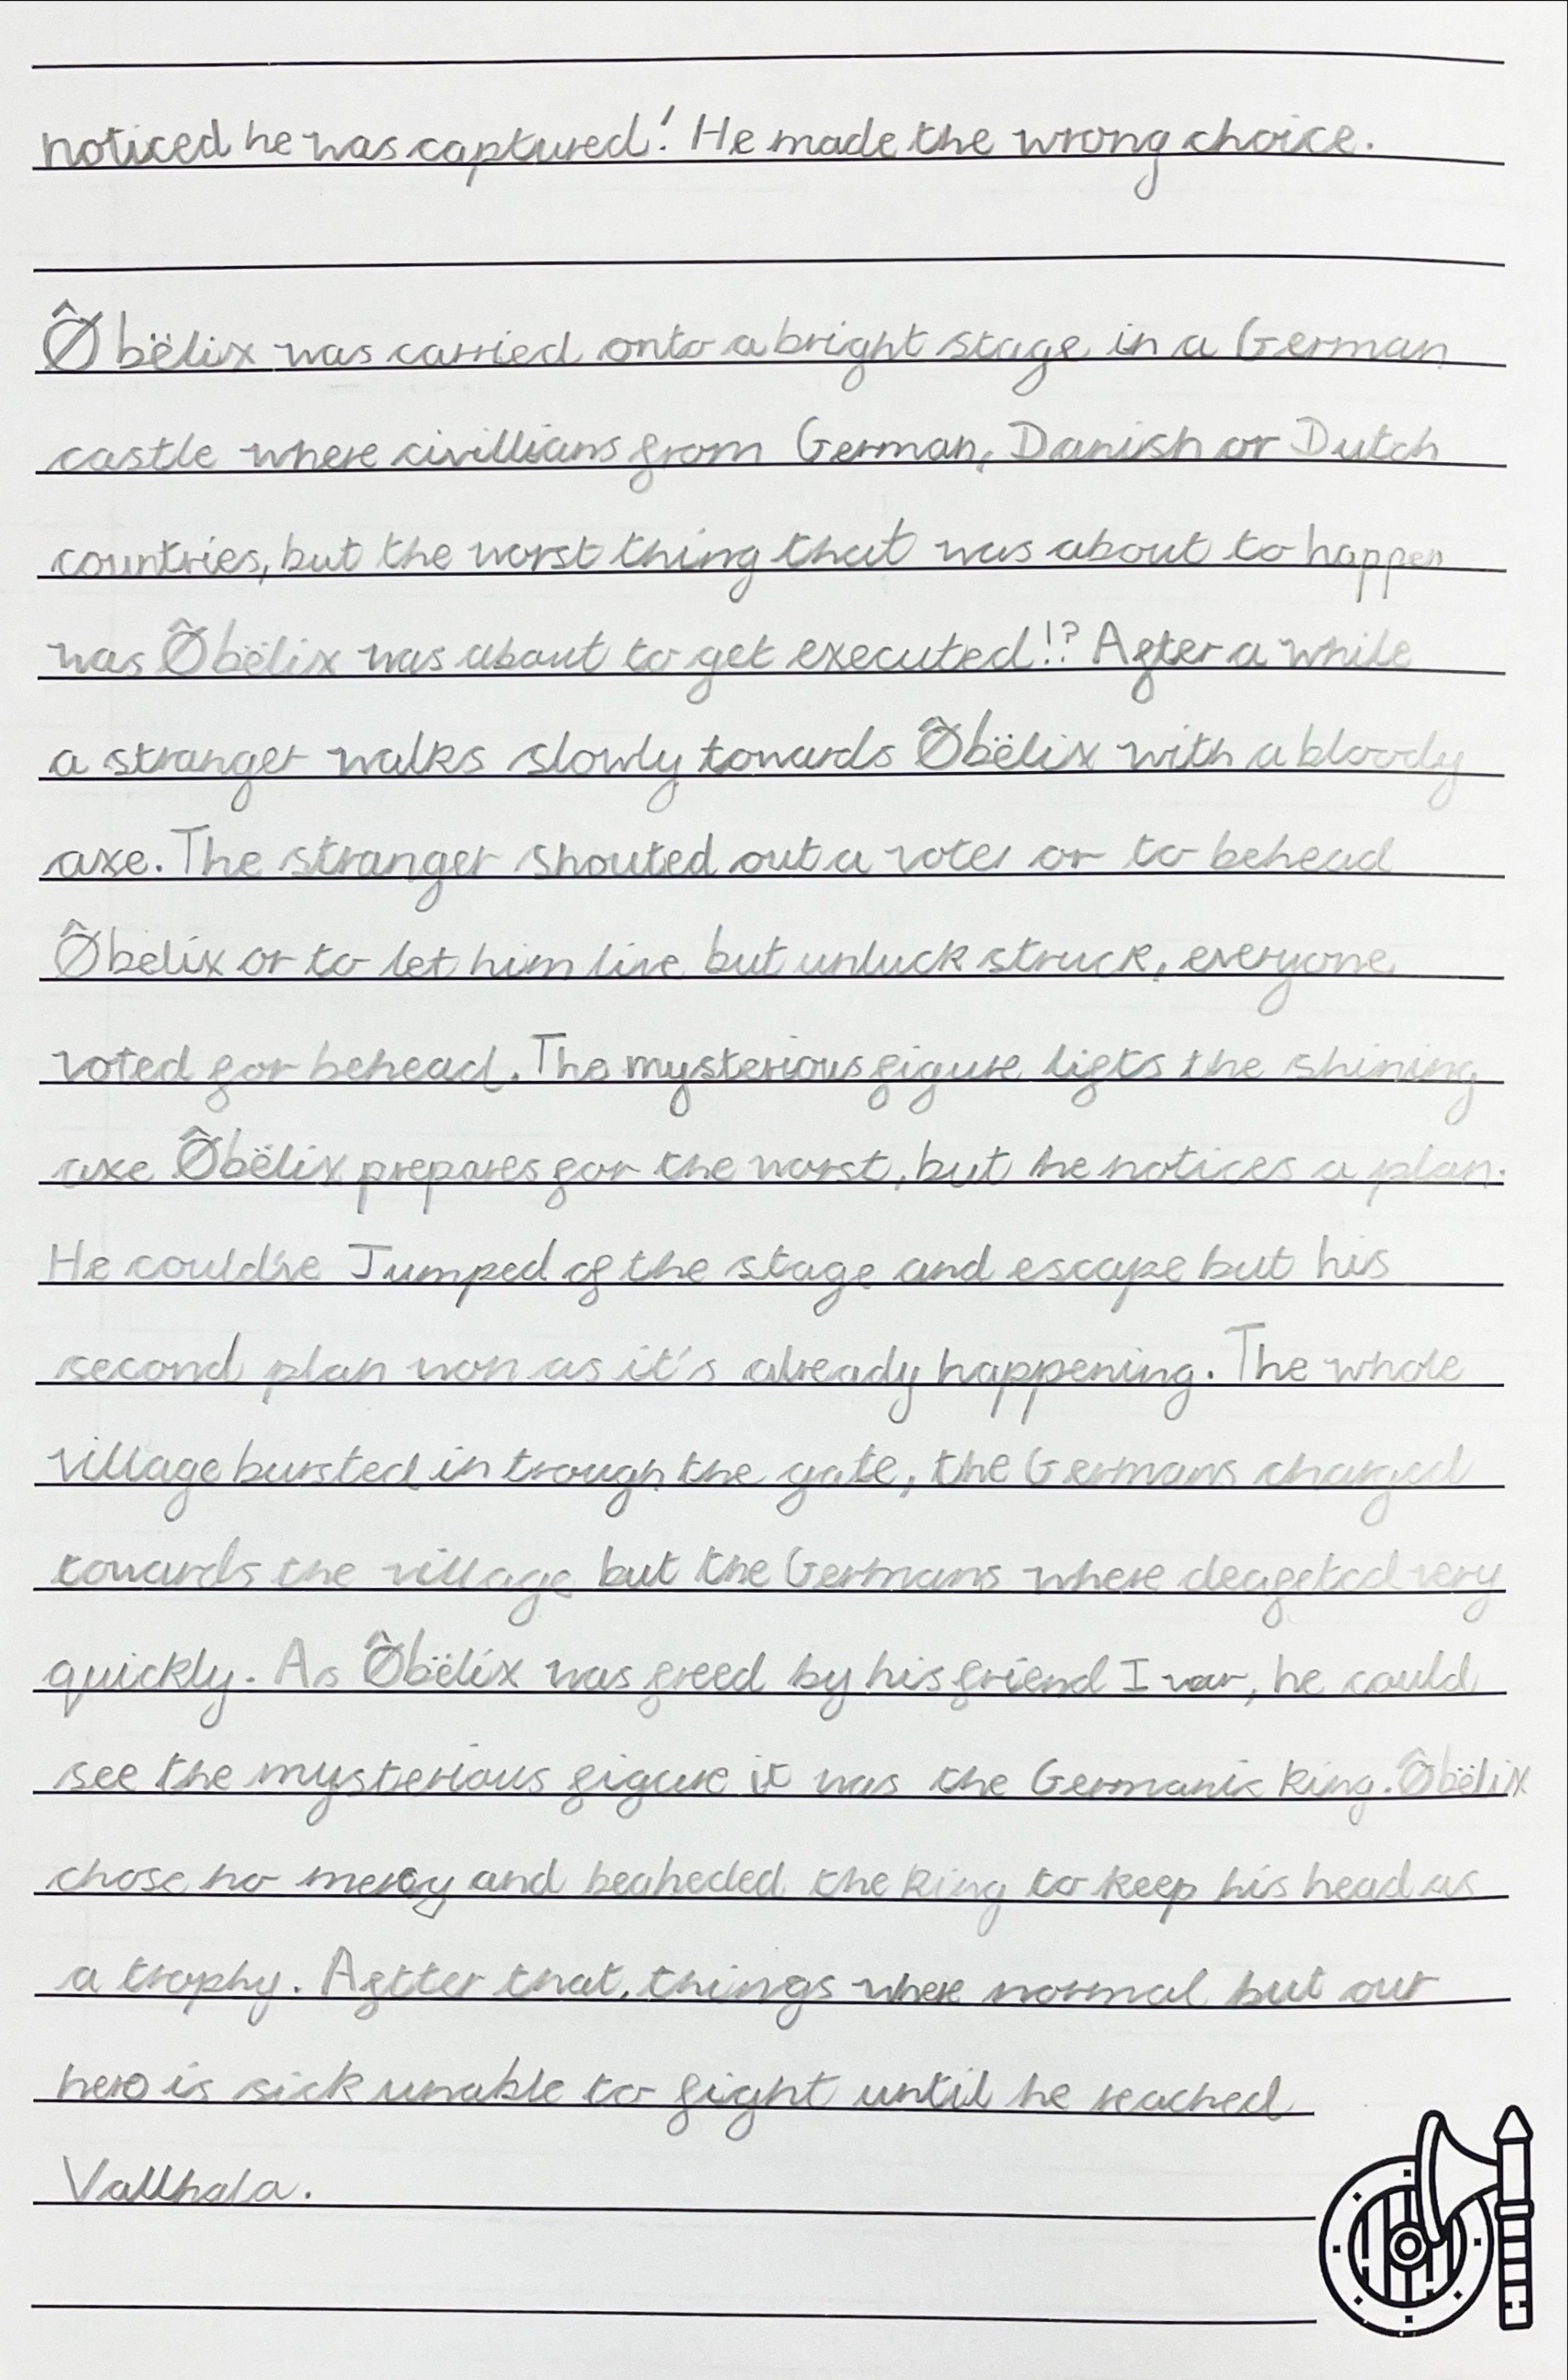 noticed he was captured! He made the wrong choice.
Õbëlix was carried onto a bright stage in a German
castle where civillians from German, Danish or Dutch
countries, but the worst thing that was about to happen
was Õbëlix was about to get executed!? After a while
a stranger walks slowly towards Õbëlix with a bloody
axe. The stranger shouted out a vote or to behead
Õbelix or to let him live but unluck struck, everyone
voted for behead. The mysterious figure lifts the shining
axe Õbëlix prepares for the worst, but he notices a plan.
He could've Jumped of the stage and escape but his
second plan won as it's already happening. The whole
village bursted in trough the gate, the Germans charged
towards the village but the Germans where deafeted very
quickly. As Õbëlix was freed by his friend Ivar, he could
see the mysterious figure it was the Germanic king. Õbëlix
chose no mercy and beaheded the king to keep his head as
a trophy. Aftter that, things where normal but our
hero is sick unable to fight until he reached
Vallhala.